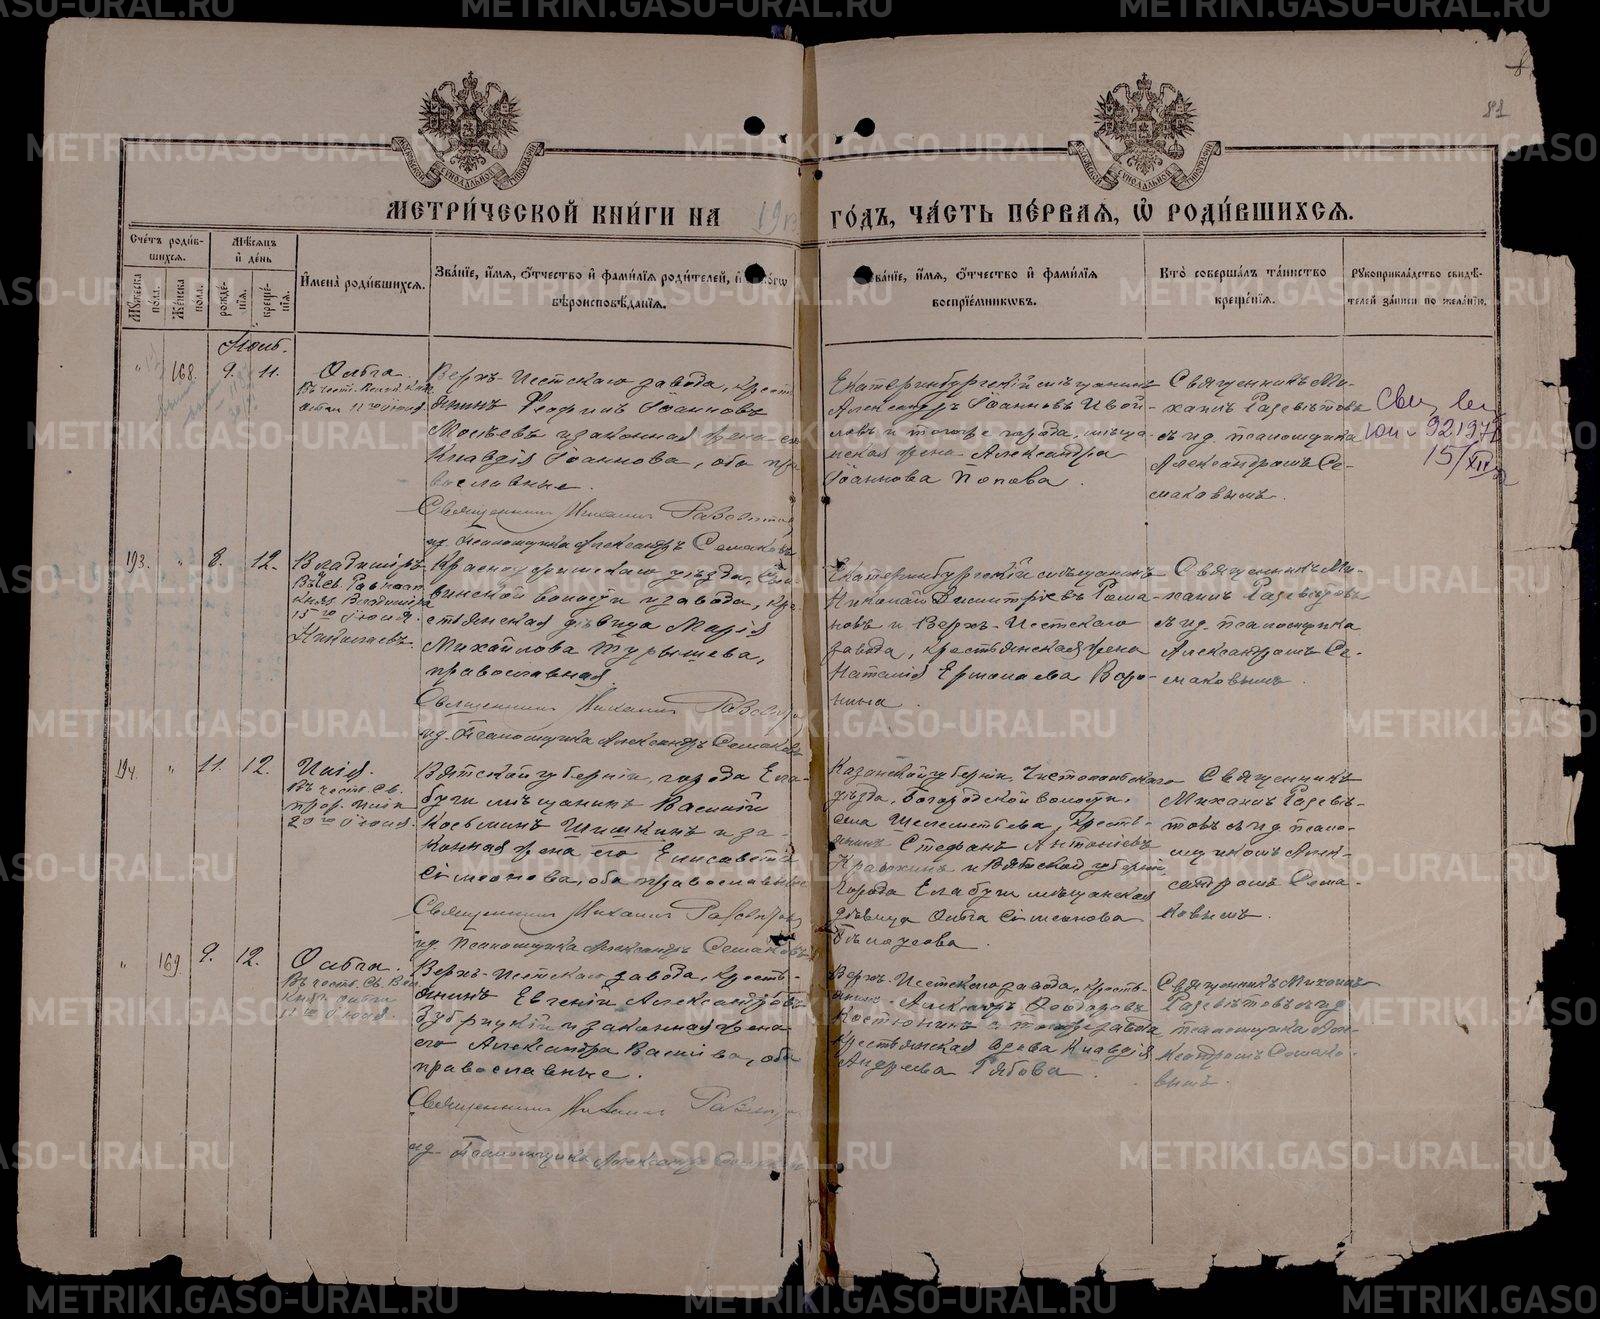 81
МОСКОВСКОЙ СѴНОДАЛЬНОЙ ТИПОГРАФІИ
МОСКОВСКОЙ СѴНОДАЛЬНОЙ ТИПОГРАФІИ
МЕТРИ́ЧЕСКОЙ КНИ́ГИ НА 19
ГО́ДЪ, ЧА́СТЬ ПЕ́РВАѦ, Ѡ҆ РОДИ́ВШИХСѦ.
Сче́тъ роди́в-
шихсѧ.
Мѣсѧцъ
и҆ де́нь
Мꙋжеска пола.
Же́нска пола.
рожде́-
нїѧ.
креще́-
нїѧ.
И҆мена̀ роди́вшихсѧ.
Зва́нїе, и҆́мѧ, ѻ҆́тчество и҆ фами́лїѧ роди́телей, и҆
вѣроисповѣ́данїѧ.
Зва́нїе, и҆́мѧ, ѻ҆́тчество и҆ фами́лїѧ
воспрїе́мникѡвъ.
Кто̀ соверша́лъ та́инство
креще́нїѧ.
Рꙋкоприкла́дство свидѣ́-
телей за́писи по жела́нїю.
168. 9. 11.
Ольга.
Верхъ-Исетскаго завода, крест
янинъ Георгій Іоанновъ
Мосѣевъ и законная жена его
Клавдія Іоаннова, оба пра
вославные.
Священникъ Михаилъ
ид. Псаломщика Александръ Семаковъ
Екатеринбургскій мѣщанинъ
Александръ Іоанновъ Ивой-
ловъ и того же города, мѣща-
нская жена Александра
Іоаннова Попова.
Священникъ Ми-
хаилъ
съ ид. псаломщика
Александромъ Се-
маковымъ.
921971
15/XII
193. " 8. 12.
Владиміръ
Въ ч. Св. Равноап.
Князя Владиміра
15го Іюля.
Николаевъ.
Красноуфимскаго уѣзда,
винской волости и завода, кре
стьянская дѣвица Марія
Михайлова Турышева,
православная.
Священникъ Михаилъ
ид. Псаломщика Александръ Семаковъ
Екатеринбургскій мѣщанинъ
Николай Димитріевъ Рома-
новъ и Верхъ-Исетскаго
завода, крестьянская жена
Наталія Ермолаева Воро-
нина.
Священникъ Ми-
хаилъ
съ ид. псаломщика
Александромъ Се-
маковымъ.
194. " 11. 12.
Илія.
Въ честь Св.
прор. Иліи
20го Іюля.
Вятской губерніи, города Ела
буги мѣщанинъ Василій
Косьминъ Шишкинъ и за-
конная жена его Елисавета
Симеонова, оба православные
Священникъ Михаилъ
ид. псаломщика Александръ Семаковъ
Казанской губерніи, Чистопольскаго
уѣзда, Богородской волости,
села Шереметьева, кресть-
янинъ Стефанъ Антоніевъ
и Вятской губерніи,
города Елабуги мѣщанская
дѣвица Ольга Симеонова
Бѣлоусова.
Священникъ
Михаилъ
съ ид. псало-
мщикомъ Алек-
сандромъ Сема-
ковымъ.
" 169. 9. 12.
Ольга.
Въ честь Св. Вел.
Княг. Ольги
11го Іюля.
Верхъ-Исетскаго завода, кресть-
янинъ Евгеній Александровъ
Зубрицкій и законная жена
его Александра Васильева, оба
православные.
Священникъ Михаилъ
ид. Псаломщика Александръ
Верхъ-Исетскаго завода, кресть-
янинъ Александръ Ѳедоровъ
Костюнинъ и того же завода
крестьянская вдова Клавдія
Андреева Рябова.
Священникъ Михаилъ
съ ид.
псаломщика Але-
ксандромъ Семако-
вымъ.
METRIKI.GASO-URAL.RU